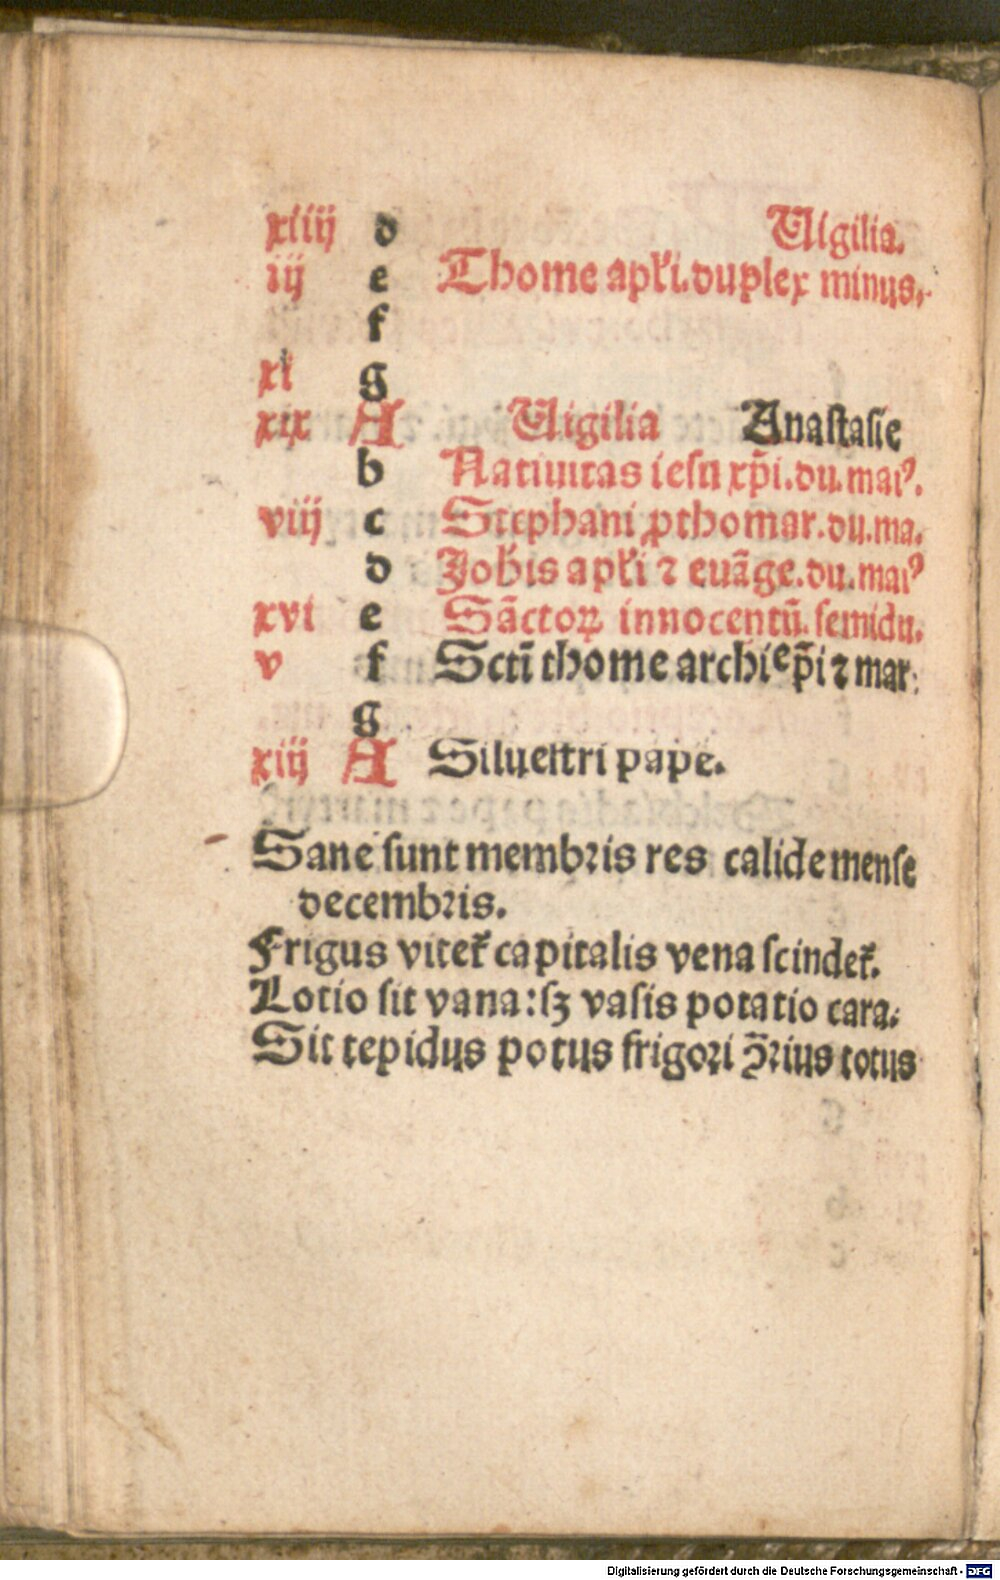 xiiij d Vigilia.
iij e Thome apl̕i. duplex minus.
f
xi g
xix A Vigilia Anastasie
b Natiuitas iesu xp̄i. du. maiꝰ.
viij c Stephani ꝓthomar. du. ma.
d Joh̄is apl̕i ⁊ euāge. du. maiꝰ
xvi e Sāctoꝝ innocentū. semidu.
v f Scti̅ thome archiep̄i ⁊ mar.
g
xiij A Siluestri pape.
Sane sunt membris res calide mense
decembris.
Frigus vitet̕ capitalis vena scindet̕.
Lotio sit vana: sꝫ vasis potatio cara.
Sit tepidus potus frigori ↄ̄rius totus
Digitalisierung gefördert durch die Deutsche Forschungsgemeinschaft - DFG